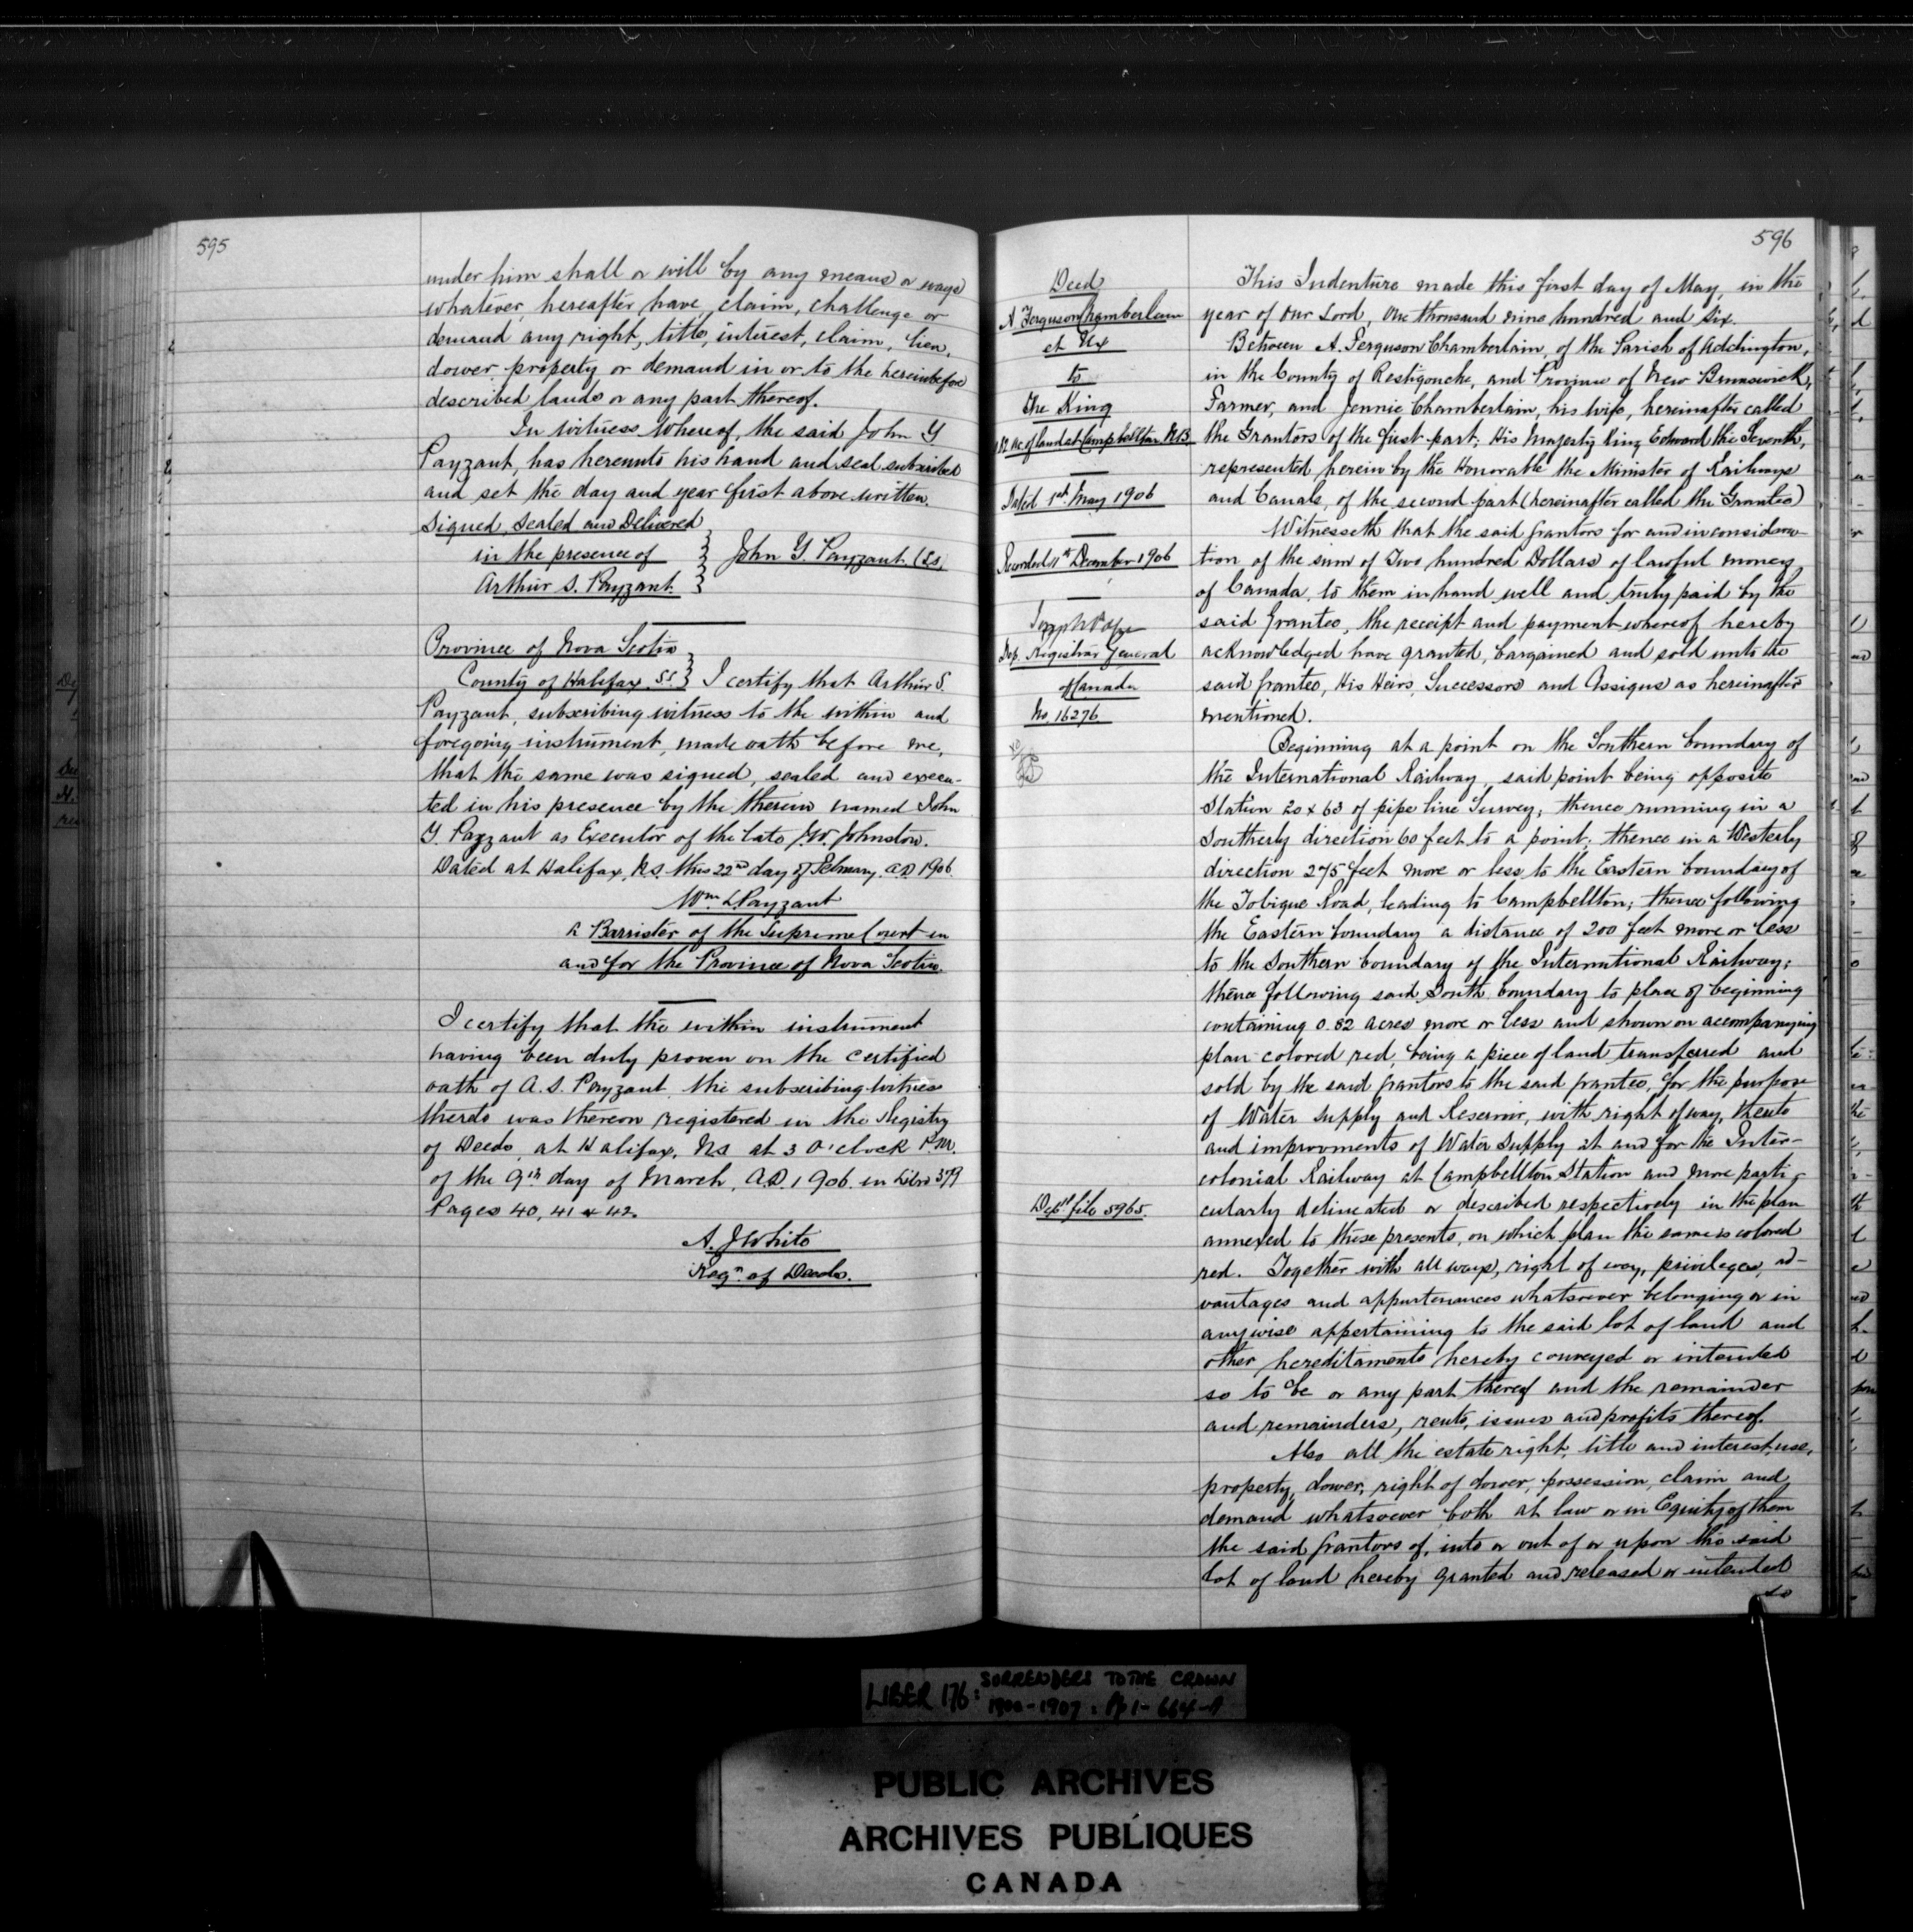 595
under him shall or will by any means or ways
whatever, hereafter have, claim, challenge or
demand any right, title, interest, claim, lien,
dower property or demand in or to the hereinbefore
described lands or any part thereof.
In witness whereof, the said John Y
Payzant, has hereunto his hand and seal subscribed
and set the day and year first above written.
Signed, Sealed and Delivered
in the presence of } John Y. Payzant (LS)
Arthur S. Payzant. }
Province of Nova Scotia
County of Halifax. S.S. } I certify that Arthur S.
Payzant, subscribing witness to the within and
foregoing instrument, made oath before me,
that the same was signed, sealed and execu-
ted in his presence by the therein named John
Y. Payzant as Executor of the late J.W. Johnston.
Dated at Halifax, N.S. this 22nd day of February. A.D. 1906.
Wm. L. Payzant
A Barrister of the Supreme Court in
and for the Province of Nova Scotia.
I certify that the within instrument
having been duly proven on the certified
oath of A. S. Payzant the subscribing witness
thereto was thereon registered in the Registry
of Deeds, at Halifax, N.S. at 3 O'clock P.M.
of the 9th day of March, A.D. 1906. in Libro 379
Pages 40, 41 & 42.
A. J White
Regr. of Deeds.
596
Deed
A Ferguson Chamberlain
et Ux
to
The King
Ac of land at Campbellton N.B.
Dated 1st May 1906
Recorded 11th December 1906
Joseph Pope
Dep. Registrar General
of Canada
No. 16276
Dept file 5965
This Indenture made this first day of May, in the
year of Our Lord, One thousand nine hundred and six.
Between A. Ferguson Chamberlain, of the Parish of Addington,
in the County of Restigouche, and Province of New Brunswick,
Farmer, and Jennie Chamberlain, his wife, hereinafter called
the Grantors of the first part; His Majesty King Edward the Seventh,
represented herein by the Honorable the Minister of Railways
and Canals, of the second part (hereinafter called the Grantee)
Witnesseth that the said Grantors for and in considera-
tion of the sum of Two hundred Dollars of lawful money
of Canada, to them in hand well and truly paid by the
said Grantee, the receipt and payment whereof hereby
acknowledged have granted, bargained and sold unto the
said Grantee, His Heirs, Successors and Assigns as hereinafter
mentioned.
Beginning at a point on the Southern boundary of
the International Railway, said point being opposite
Station 20 x 63 of pipe line Survey; thence running in a
Southerly direction 60 feet to a point; thence in a Westerly
direction 275 feet more or less to the Eastern boundary of
the Tobique Road, leading to Campbellton; thence following
the Eastern boundary a distance of 200 feet more or less
to the Southern boundary of the International Railway;
thence following said South boundary to place of beginning
containing 0.82 acres more or less and shown on accompanying
plan colored red, being a piece of land transferred and
sold by the said Grantors to the said Grantee, for the purpose
of Water supply and Reservoir, with right of way, thereto
and improvments of Water Supply at and for the Inter-
colonial Railway at Campbellton Station and more parti-
cularly delineated or described respectively in the plan
annexed to these presents, on which plan the same is colored
red. Together with all ways, right of way, privileges, ad-
vantages and appurtenances whatsoever belonging or in
anywise appertaining to the said lot of land and
other hereditaments hereby conveyed or intended
so to be or any part thereof and the remainder
and remainders, rents, issues and profits thereof.
Also all the estate right, title and interest, use,
property, dower, right of dower, possession, claim and
demand whatsoever both at law or in Equity of them
the said Grantors of, into or out of or upon the said
lot of land hereby granted and released or intended
so
LIBER 176: SURRENDERS TO THE CROWN
1900-1907: Pp 1-664-A
PUBLIC ARCHIVES
ARCHIVES PUBLIQUES
CANADA